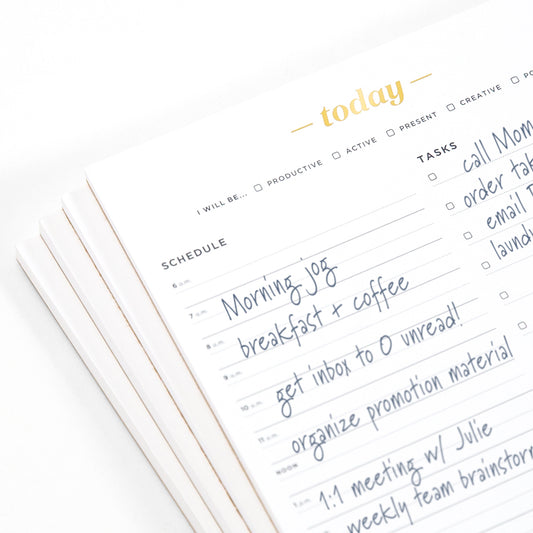 — today —
I WILL BE... ☐ PRODUCTIVE ☐ ACTIVE ☐ PRESENT ☐ CREATIVE ☐
SCHEDULE
6 a.m.
7 a.m. Morning jog
8 a.m. breakfast + coffee
9 a.m.
10 a.m. get inbox to 0 unread!
11 a.m. organize promotion material
NOON
1 p.m. 1:1 meeting w/ Julie
weekly team brainstorm
TASKS
☐ call Mom
☐ order
☐ email
☐
☐
☐